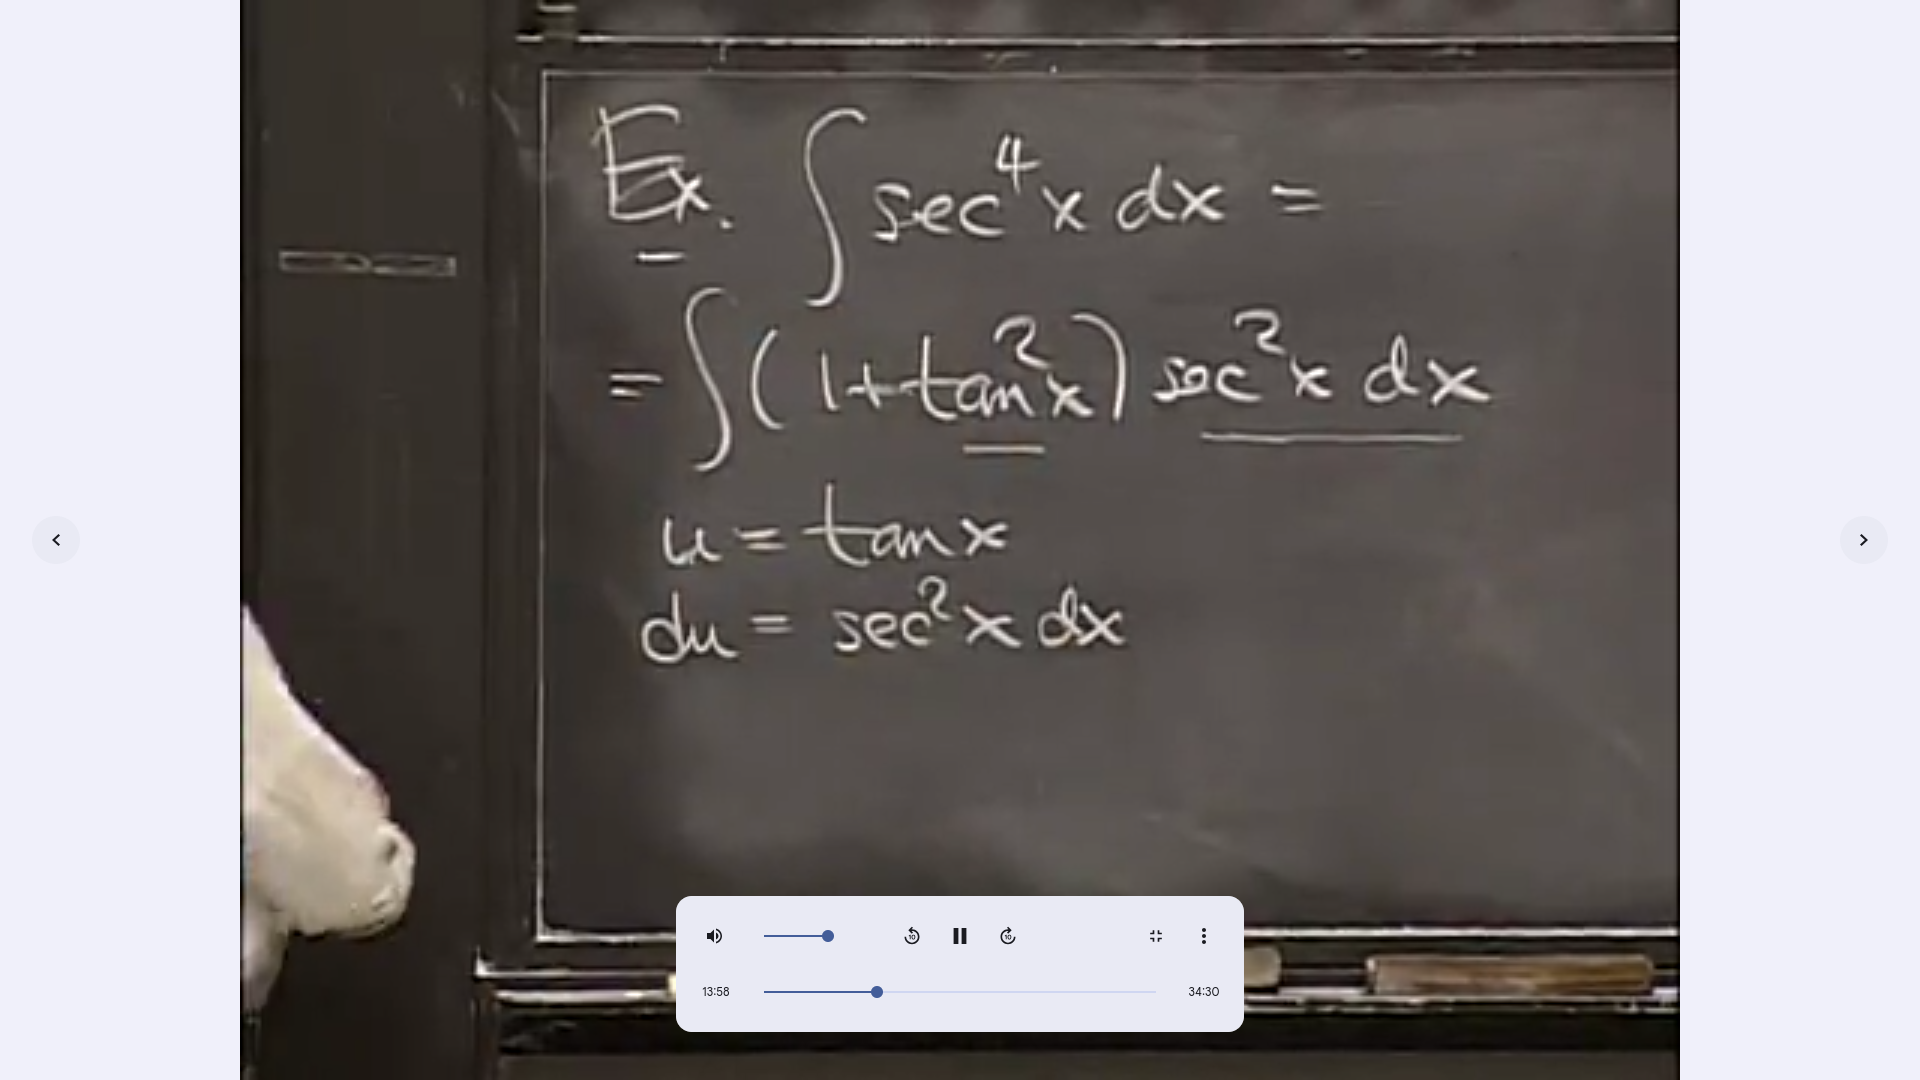 Ex. ∫ sec⁴x dx =
= ∫ (1+tan²x) sec²x dx
u = tan x
du = sec²x dx
10 10
13:58 34:30